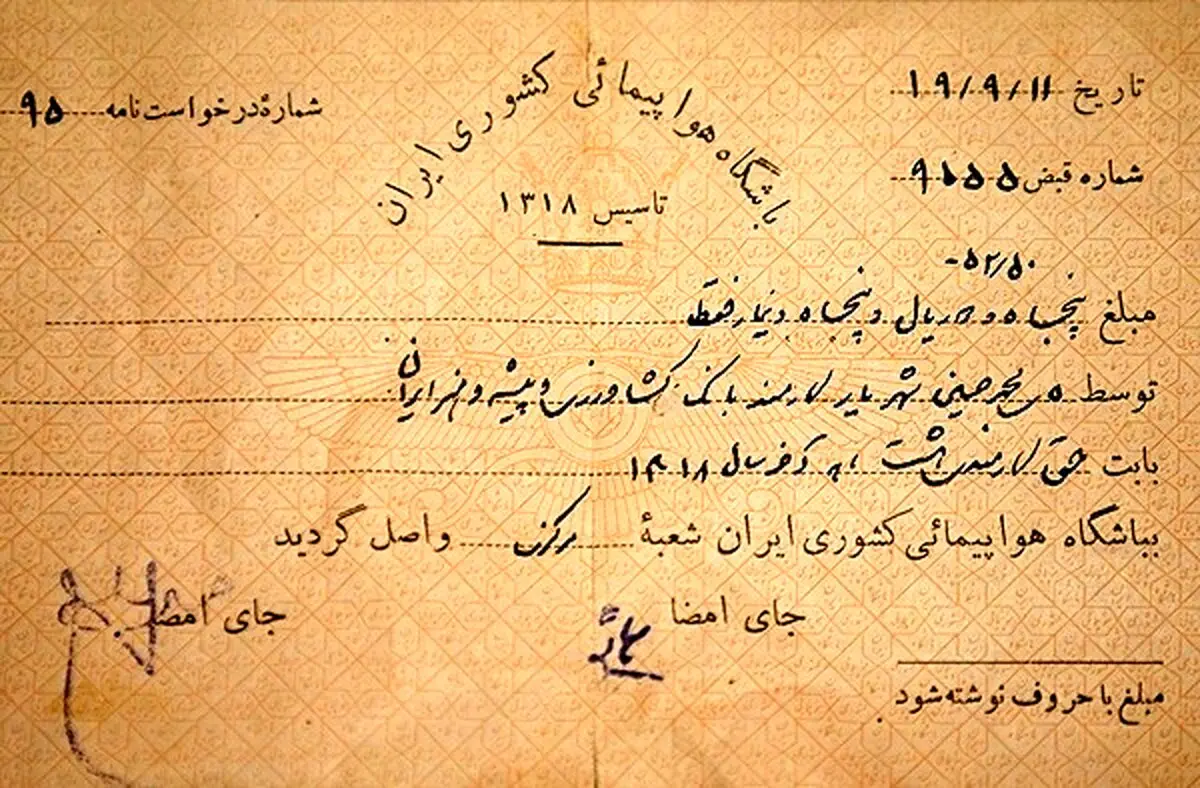 باشگاه هواپیمائی کشوری ایران
تاسیس ۱۳۱۸
تاریخ ۱۹/۹/۱۱
شماره قبض ۹۸۵۵
شمارهٔ درخواست نامه ۹۵
۵۲/۵۰-
مبلغ پنجاه و دو ریال و پنجاه دینار فقط
توسط محمد حسین شهریار کارمند بانک کشاورزی و پیشه و هنر ایران
بابت حق کارمندی آخر سال ۱۳۱۸
بباشگاه هواپیمائی کشوری ایران شعبهٔ مرکزی واصل گردید
جای امضا
جای امضا
مبلغ با حروف نوشته شود